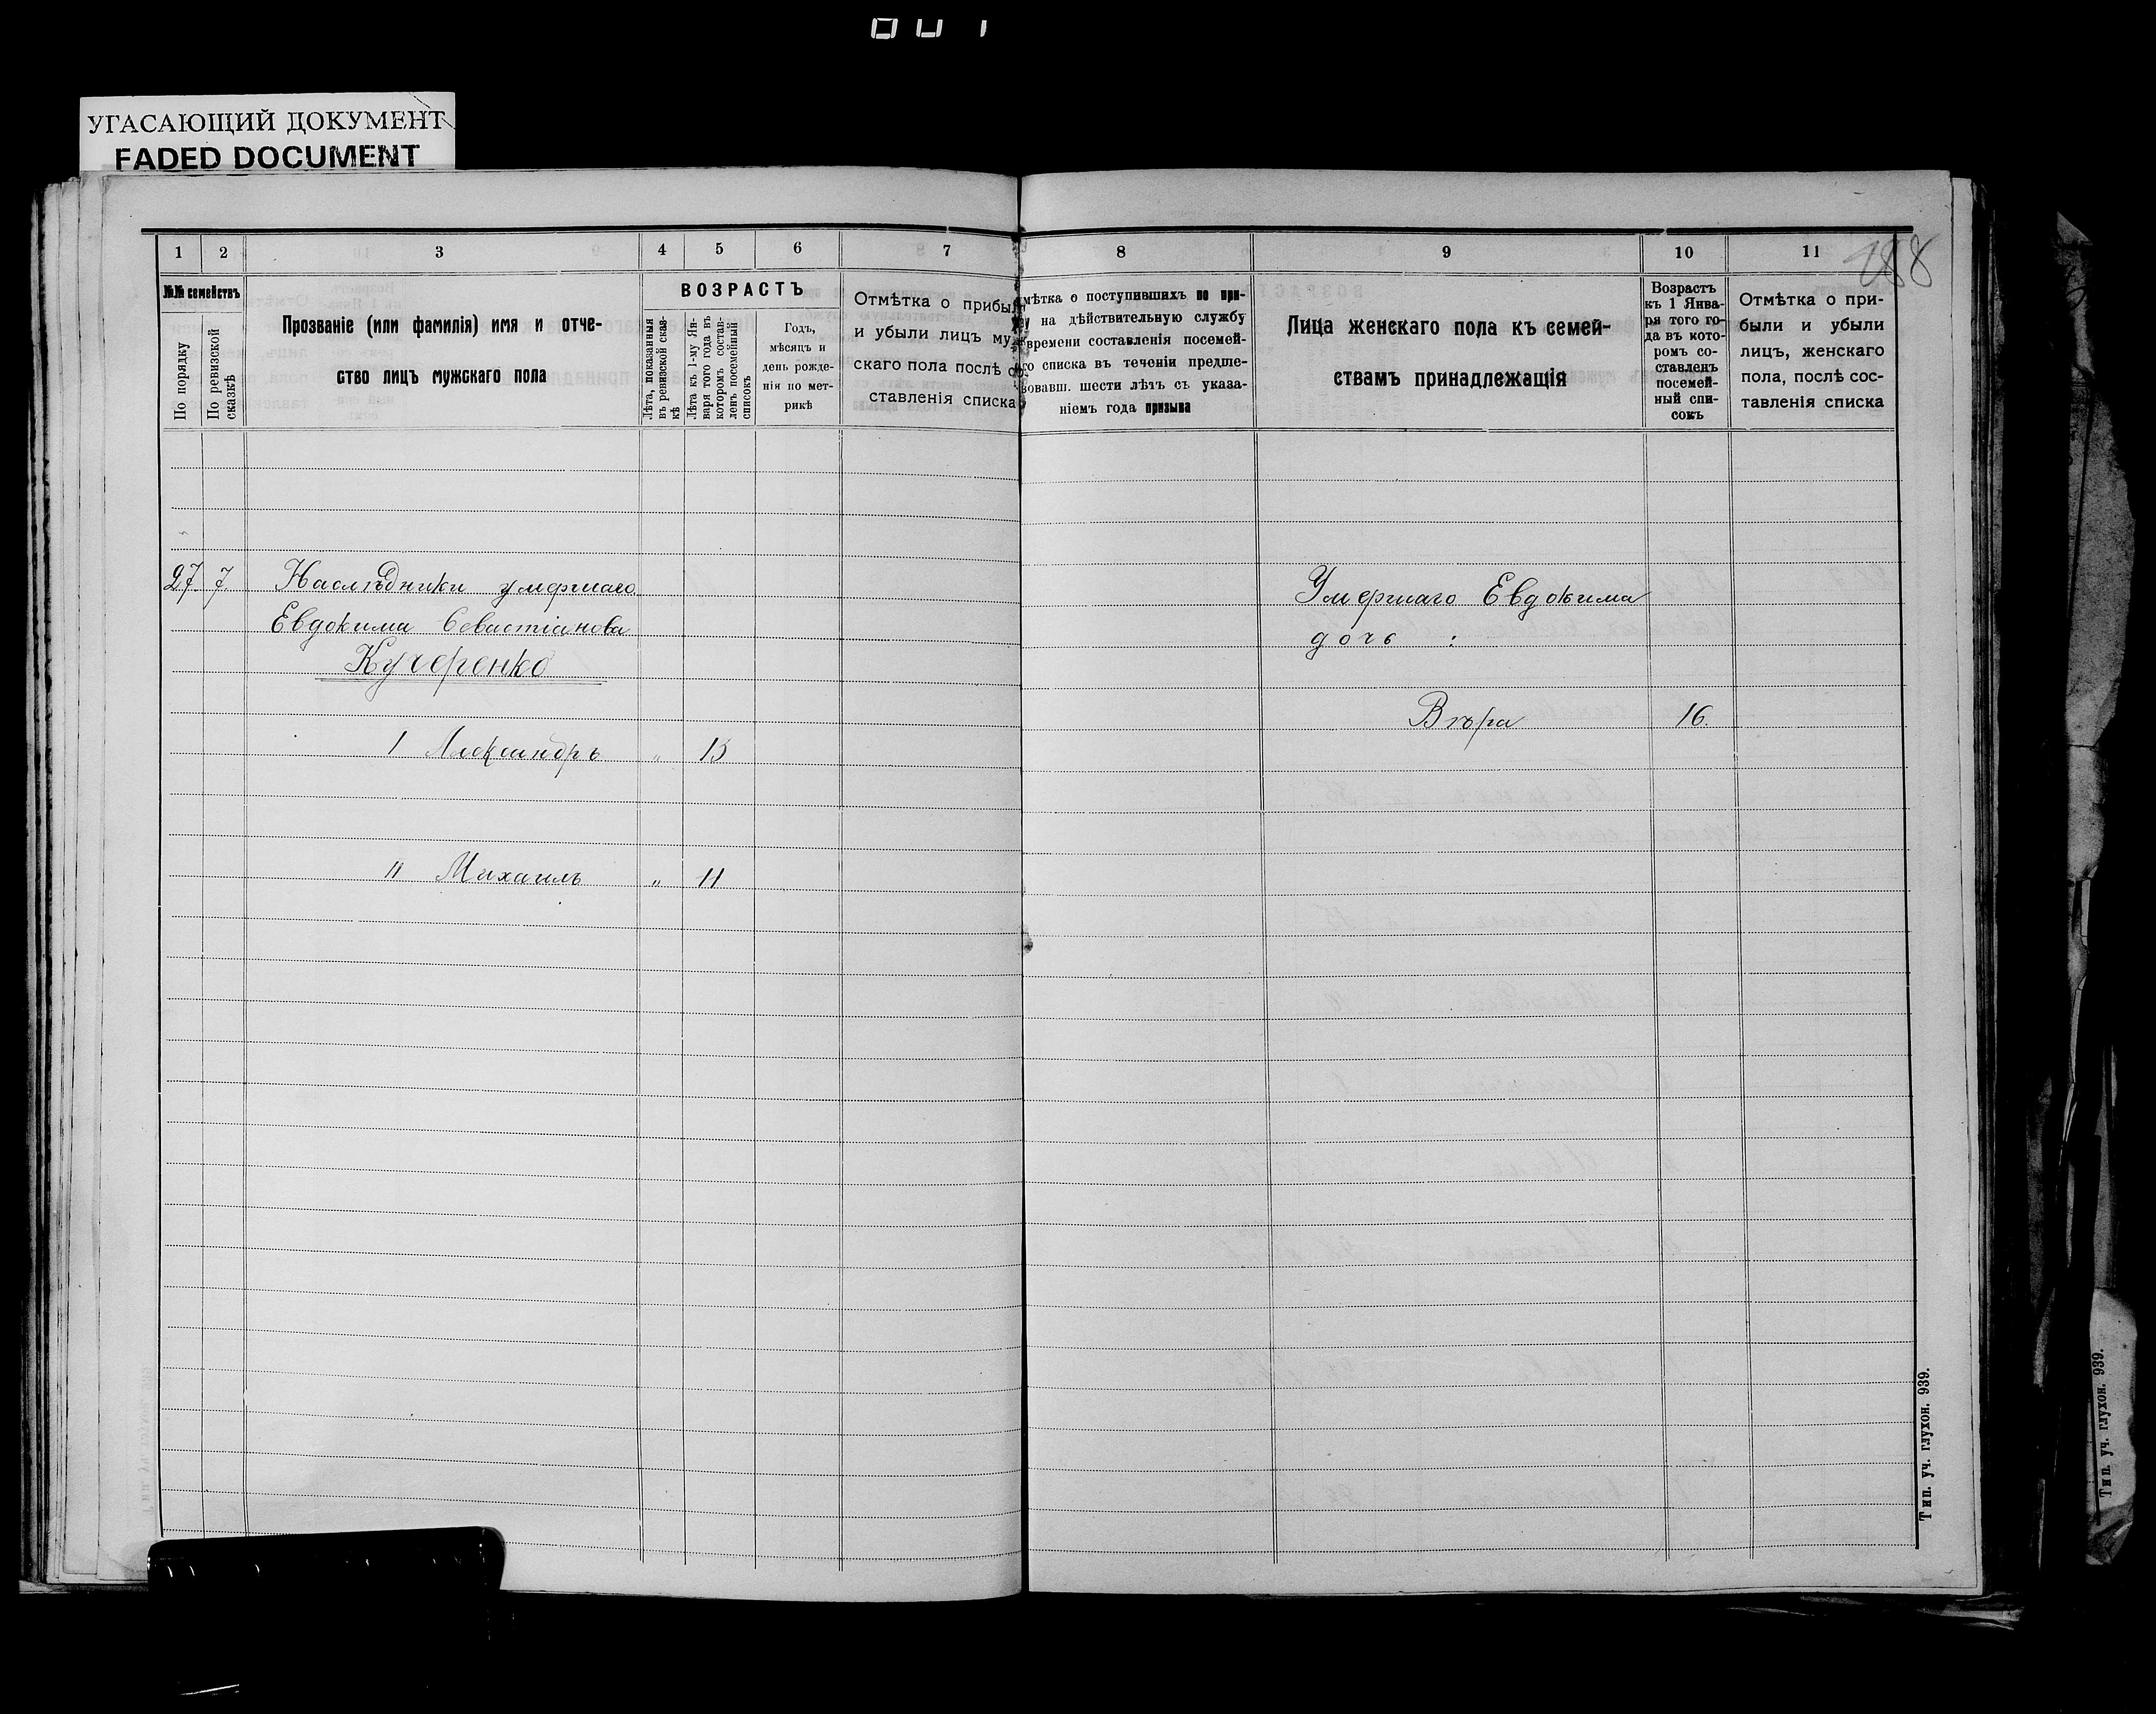 УГАСАЮЩИЙ ДОКУМЕНТ
FADED DOCUMENT
188
1 2 3 4 5 6 7 8 9 10 11
№№ семействъ
По порядку
По ревизской
сказкѣ
Прозваніе (или фамилія) имя и отче-
ство лицъ мужскаго пола
ВОЗРАСТЪ
Лѣта, показанныя
въ ревизской сказ-
кѣ
Лѣта къ 1-му Ян-
варя того года въ
которомъ состав-
ленъ посемейный
списокъ
Годъ,
мѣсяцъ и
день рожде-
нія по мет-
рикѣ
Отмѣтка о прибыл
и убыли лицъ муж
скаго пола послѣ со
ставленія списка
мѣтка о поступившихъ по при-
ву на дѣйствительную службу
времени составленія посемей-
го списка въ теченіи предше-
вовавш. шести лѣтъ съ указа-
ніемъ года призыва
Лица женскаго пола къ семей-
ствамъ принадлежащія
Возрастъ
къ 1 Янва-
ря того го-
да въ кото-
ромъ со-
ставленъ
посемей-
ный спи-
сокъ
Отмѣтка о при-
были и убыли
лицъ, женскаго
пола, послѣ сос-
тавленія списка
27. 7. Наслѣдники умершаго
Евдокима Севастіанова
Кучеренко
1 Александръ „ 15
11 Михаилъ „ 11
Умершаго Евдокима
дочь :
Вѣра 16.
Тип. уч. глухон. 939.
Тип. уч. глухон. 939.